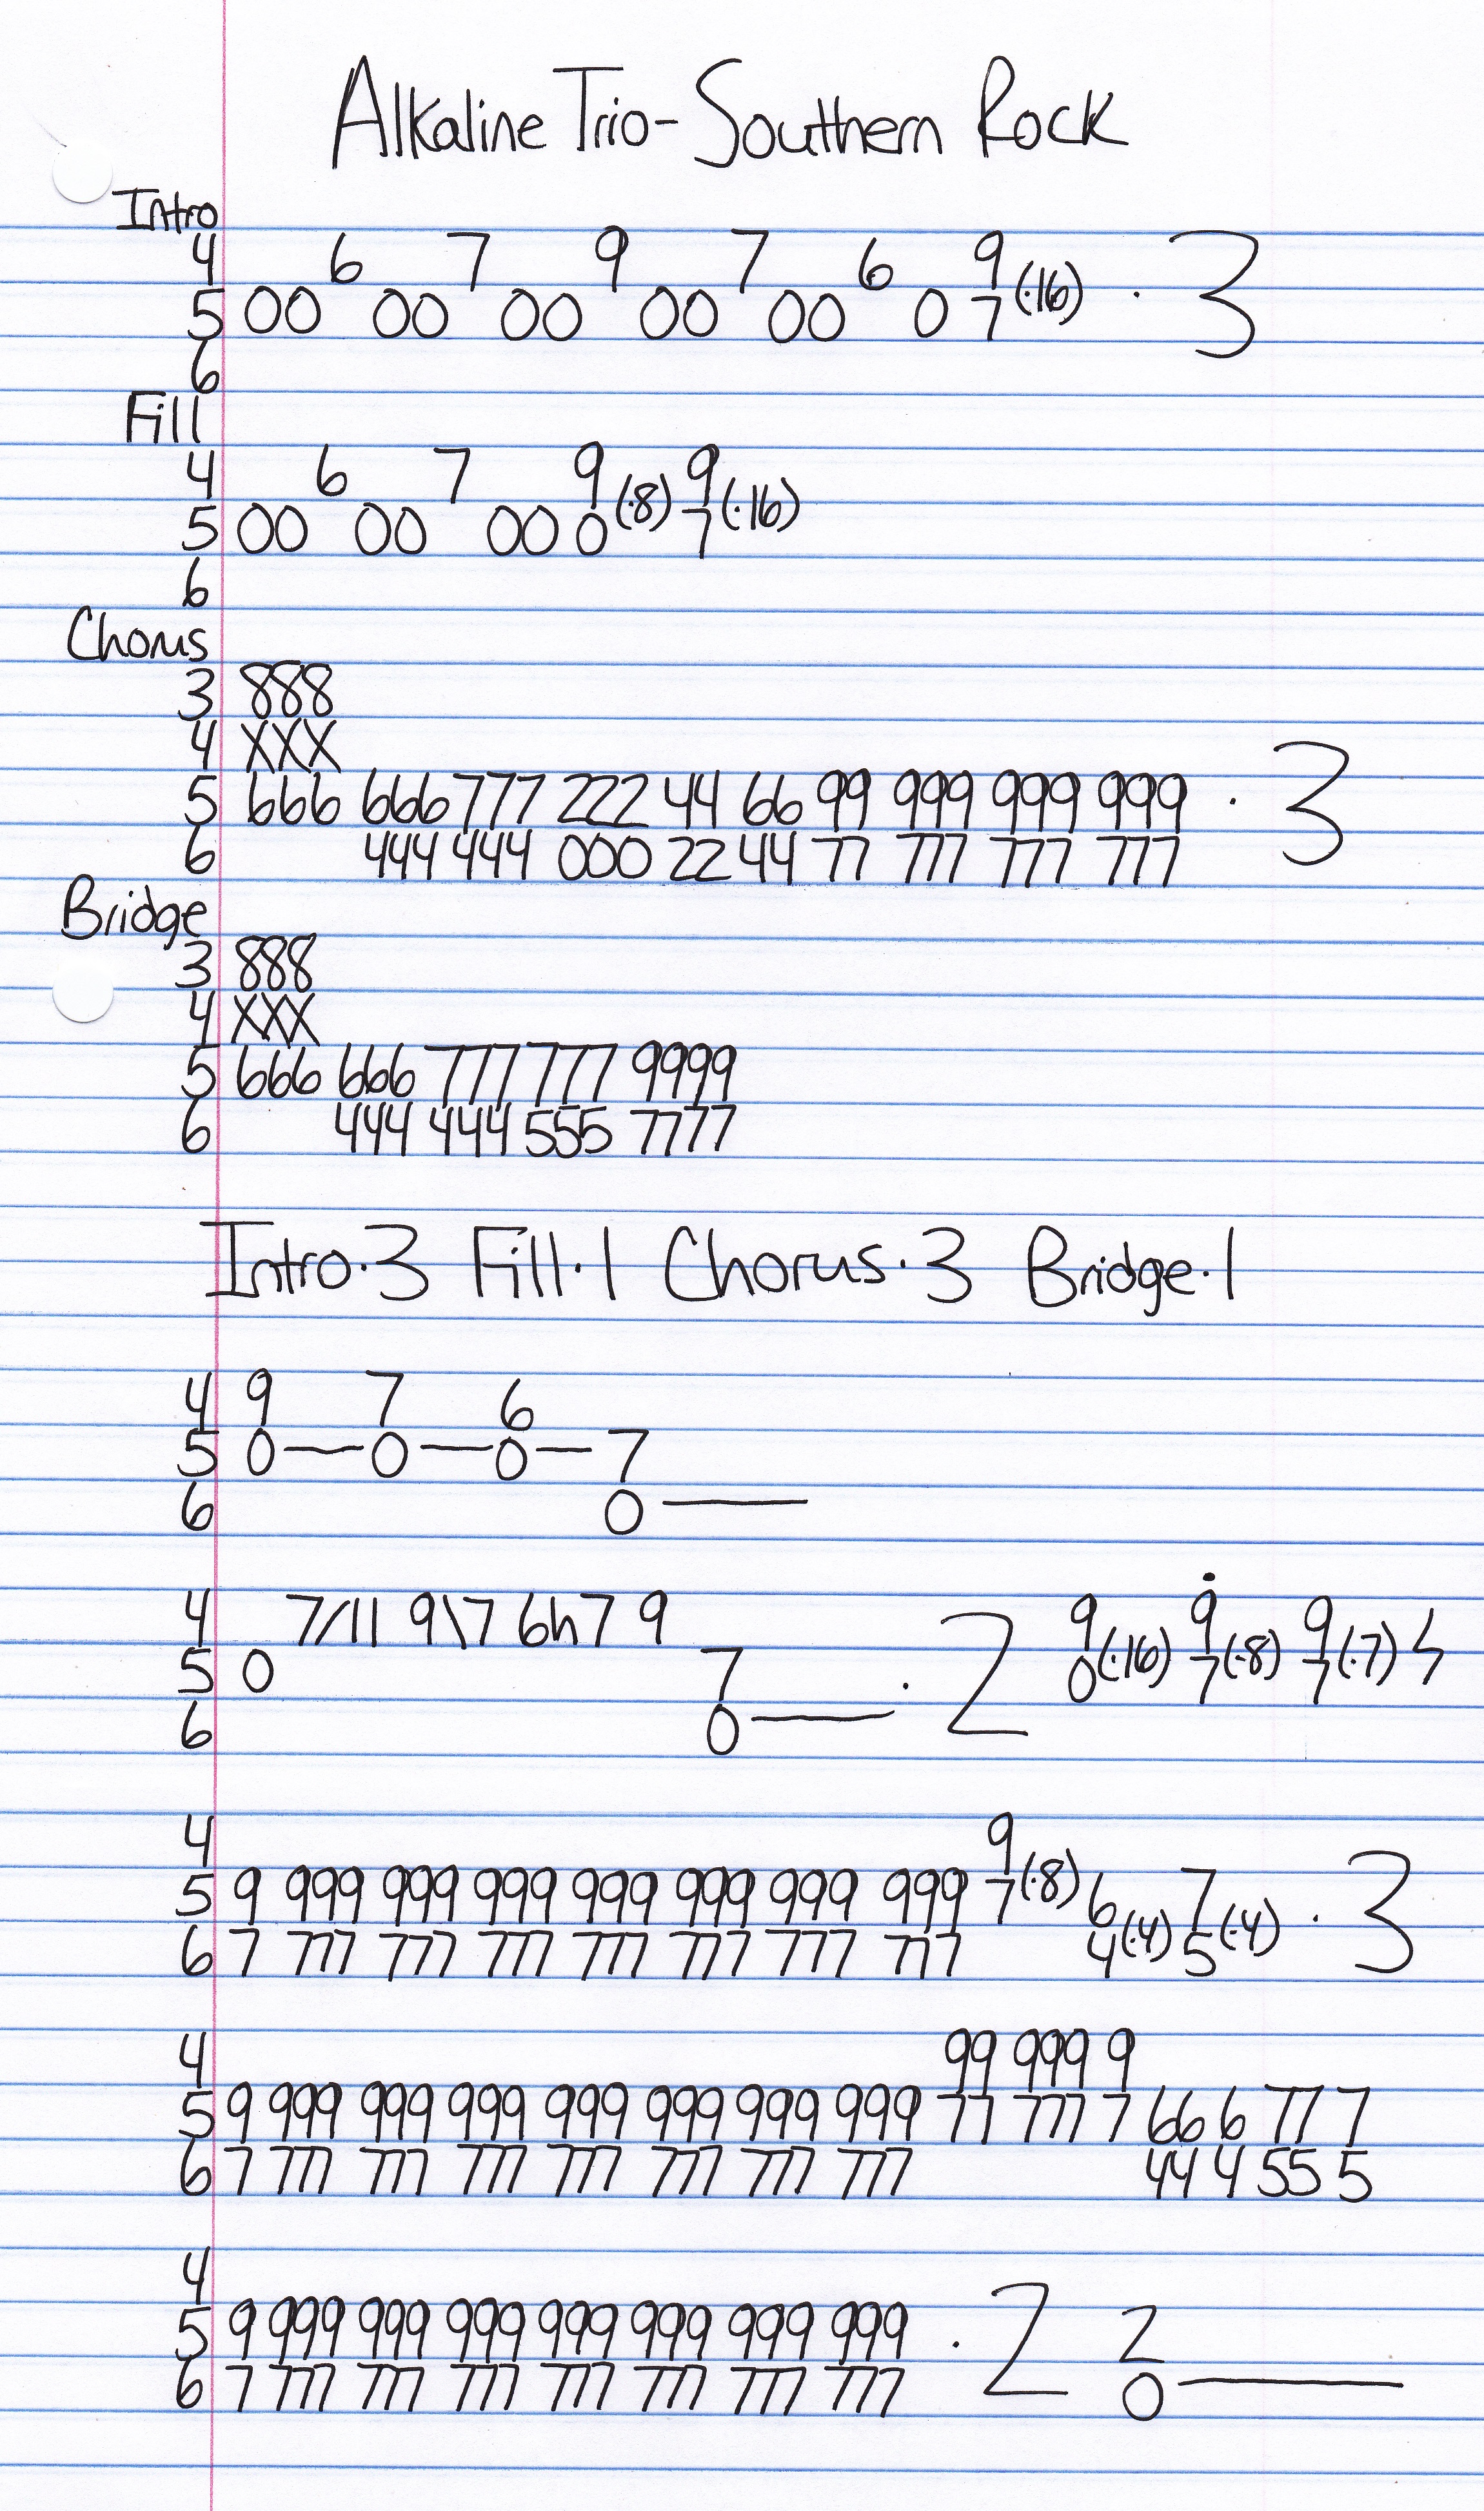 Alkaline Trio-Southern Rock
Intro
4 6 7 9 7 6 9
5 00 00 00 00 00 0 7 (·16) · 3
6
Fill
4 6 7 9 9
5 00 00 00 0 (·8) 7 (·16)
6
Chorus
3 888
4 XXX
5 666 666 777 222 44 66 99 999 999 999 · 3
6 444 444 000 22 44 77 777 777 777
Bridge
3 888
4 XXX
5 666 666 777 777 9999
6 444 444 555 7777
Intro·3 Fill·1 Chorus·3 Bridge·1
4 9 7 6
5 0 — 0 — 0 — 7
6 0 —
4 7/11 9\7 6h7 9 9 9 9
5 0 7 · 2 0 (·16) 7 (·8) 7 (·7)
6 0 —
4 9
5 9 999 999 999 999 999 999 999 7 (·8) 6 7 · 3
6 7 777 777 777 777 777 777 777 4 (·4) 5 (·4)
4 99 999 9
5 9 999 999 999 999 999 999 999 77 777 7 66 6 77 7
6 7 777 777 777 777 777 777 777 44 4 55 5
4
5 9 999 999 999 999 999 999 999 · 2 2
6 7 777 777 777 777 777 777 777 0 —